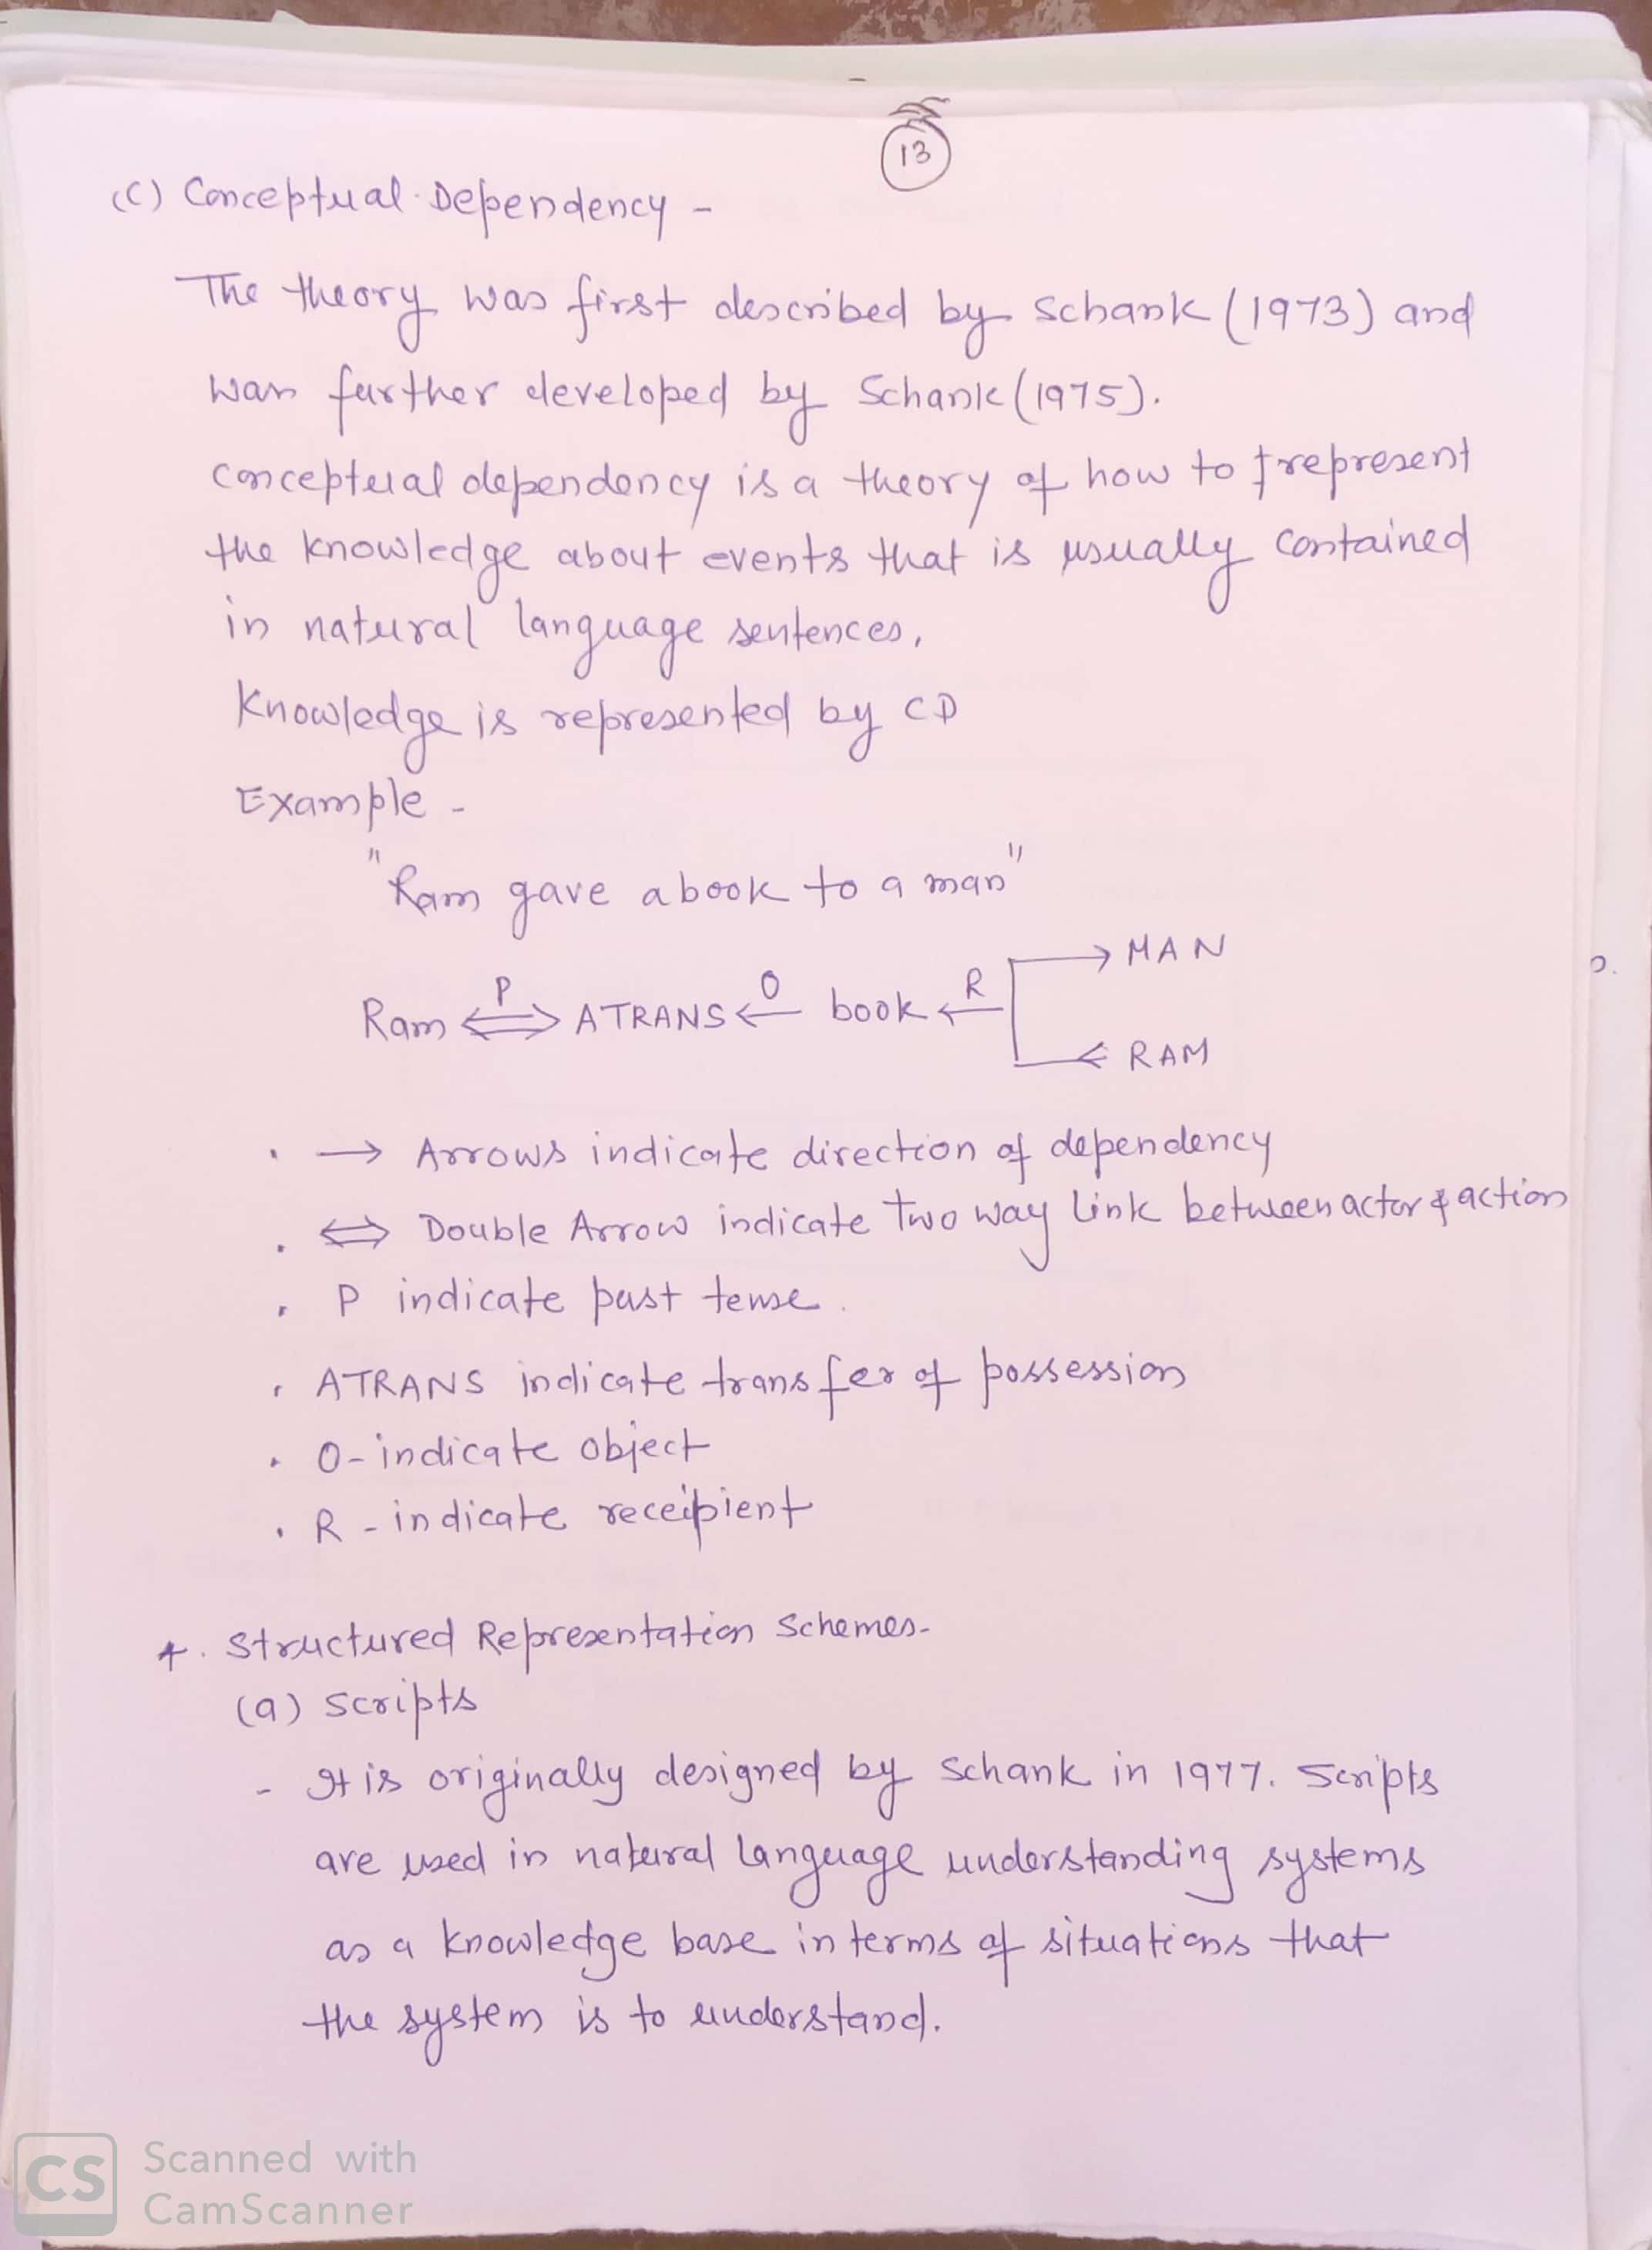 13
(C) Conceptual Dependency -
The theory was first described by Schank (1973) and
was further developed by Schank (1975).
Conceptual dependency is a theory of how to represent
the knowledge about events that is usually contained
in natural language sentences.
Knowledge is represented by CD
Example -
"Ram gave a book to a man"
MAN
Ram ⇔ P ATRANS ← O book ← R
RAM
. → Arrows indicate direction of dependency
. ⇔ Double Arrow indicate two way link between actor & action
. P indicate past tense.
. ATRANS indicate transfer of possession
. O - indicate object
. R - indicate receipient
4. Structured Representation Schemes -
(a) Scripts
- It is originally designed by Schank in 1977. Scripts
are used in natural language understanding systems
as a knowledge base in terms of situations that
the system is to understand.
CS Scanned with
CamScanner